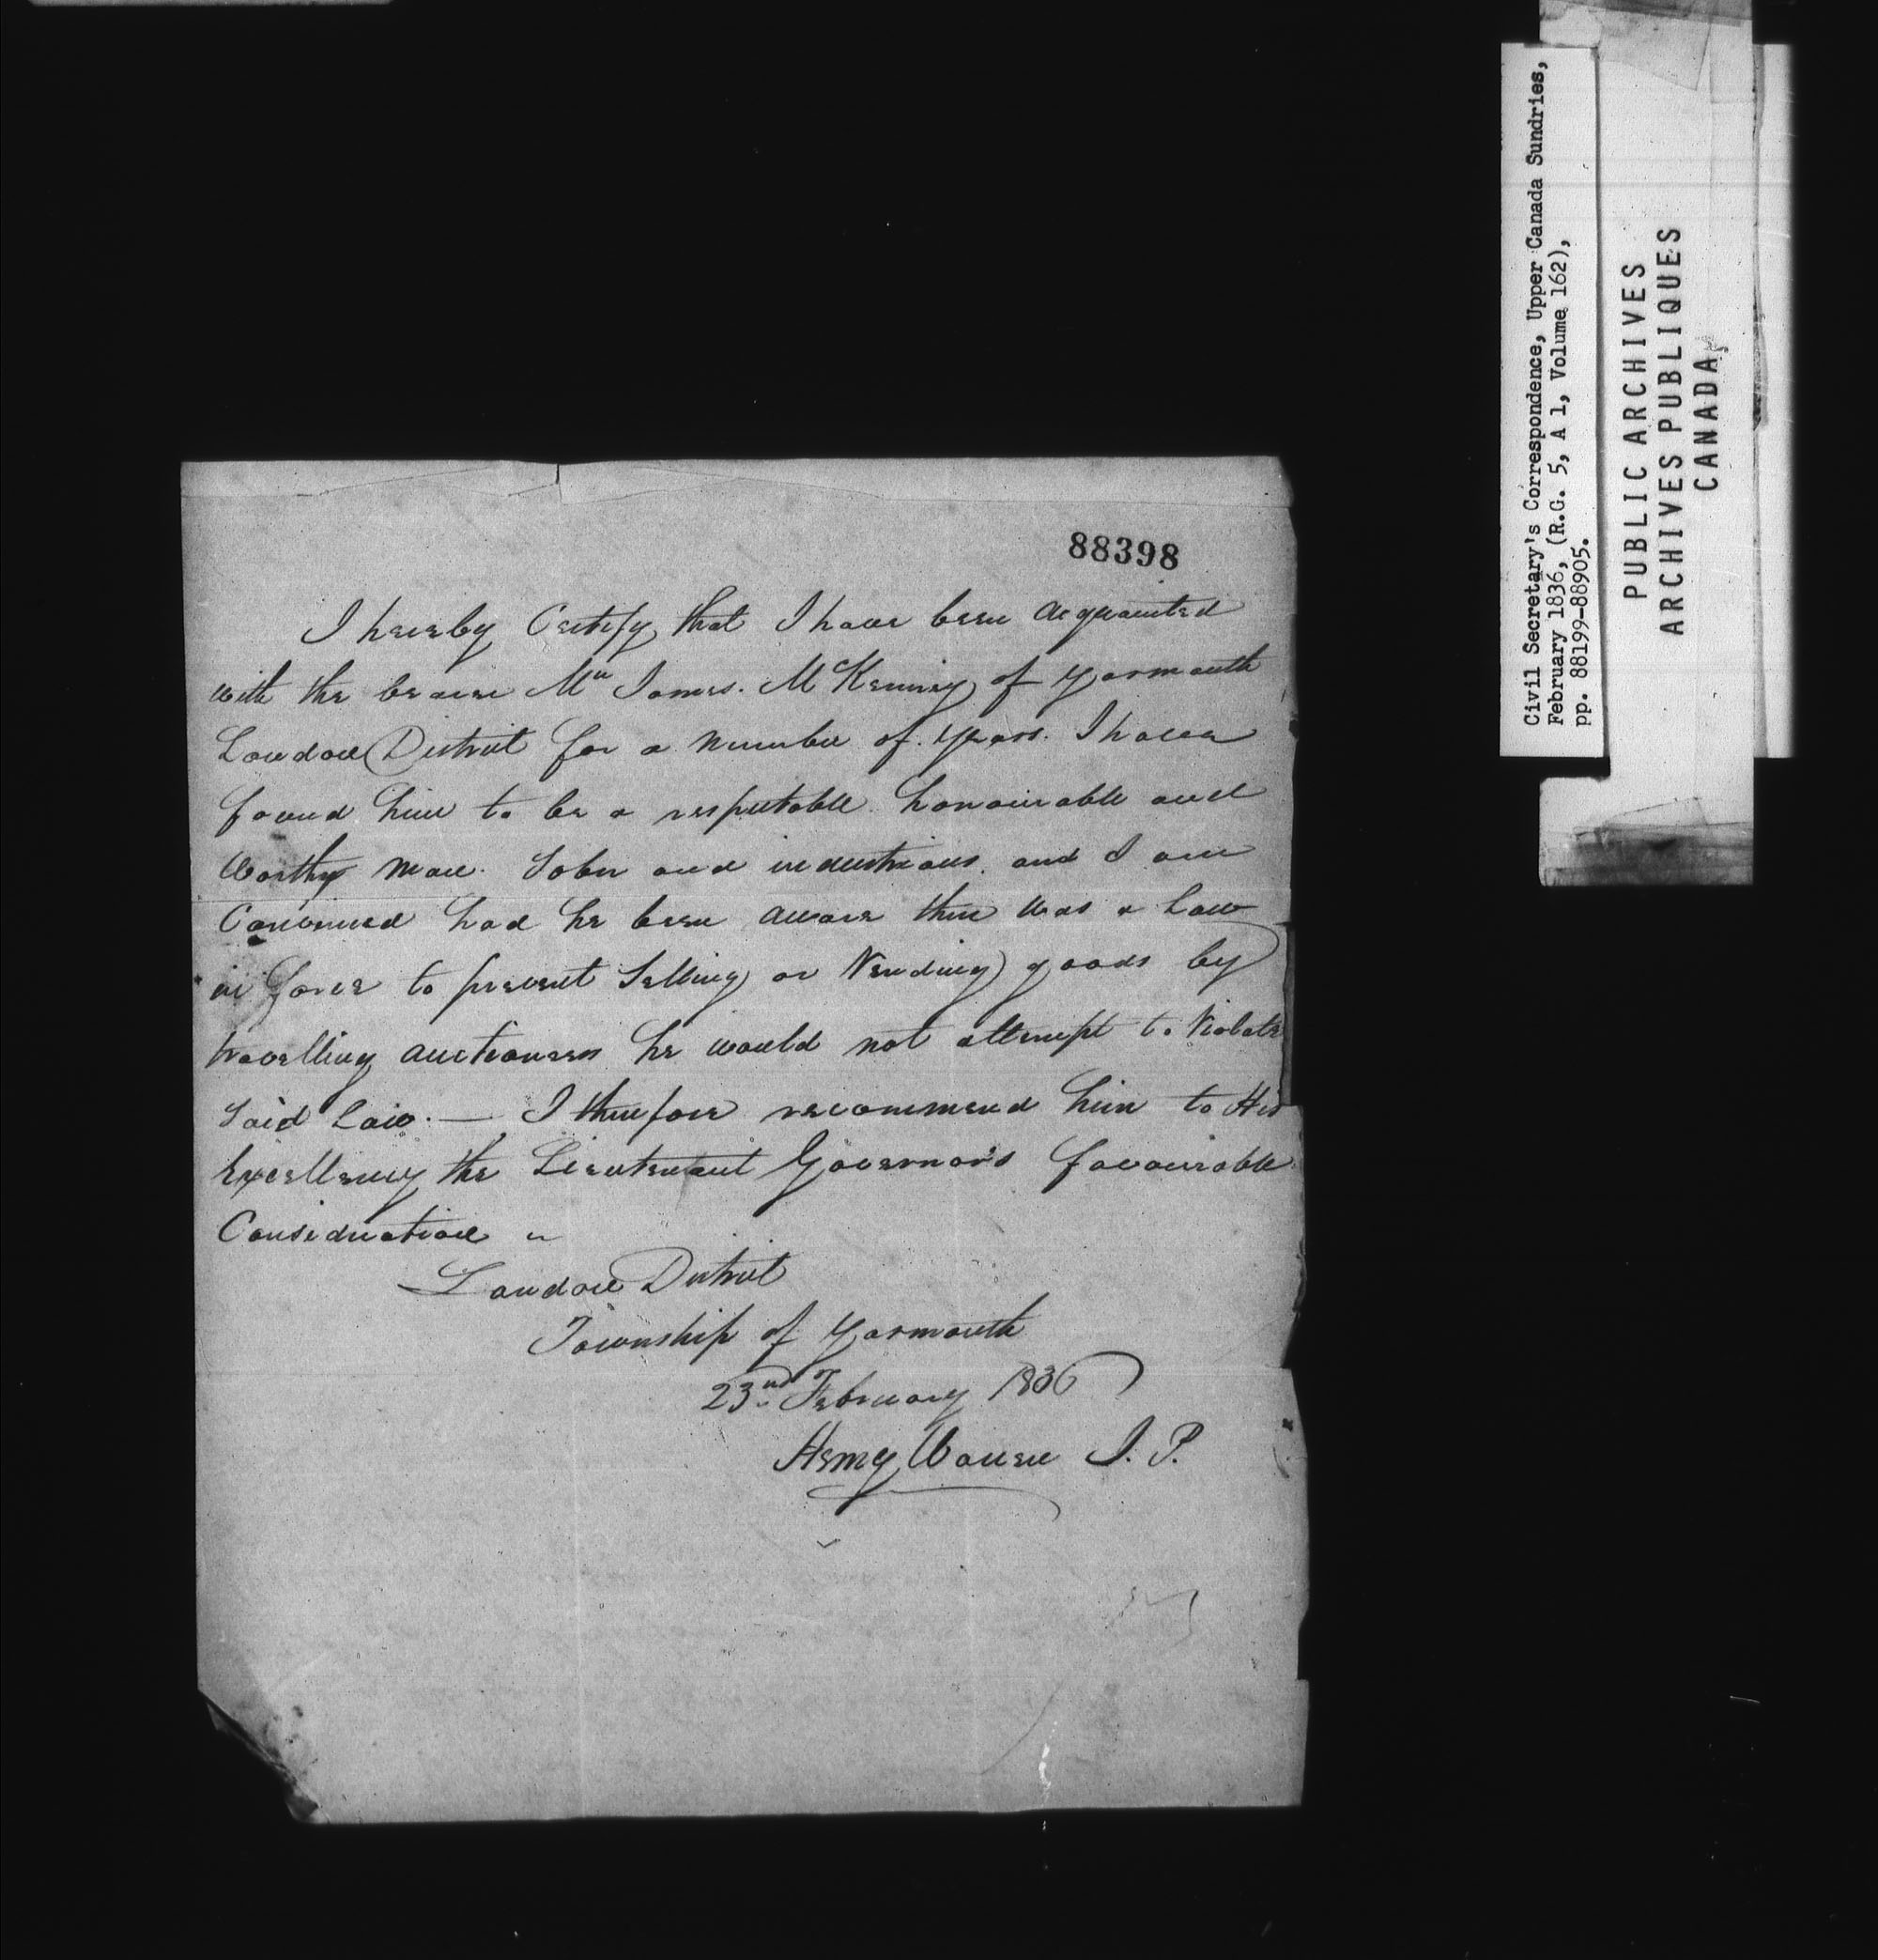 88398
I hereby Certify that I have been acquainted
with the bearer Mr James. McKenney of Yarmouth
London District for a number of years. I have
found him to be a respectable honourable and
Worthy man. Sober and industrious. and I am
Convinced had he been aware there was a Law
in force to prevent Selling or Vending goods by
travelling auctioneers he would not attempt to Violate
Said Law. — I therefore recommend him to His
Excellency the Lieutenant Governor's favourable
Consideration
London District
Township of Yarmouth
23nd February 1836
Henry J. P.
Civil Secretary's Correspondence, Upper Canada Sundries,
February 1836, (R.G. 5, A 1, Volume 162),
pp. 88199-88905.
PUBLIC ARCHIVES
ARCHIVES PUBLIQUES
CANADA